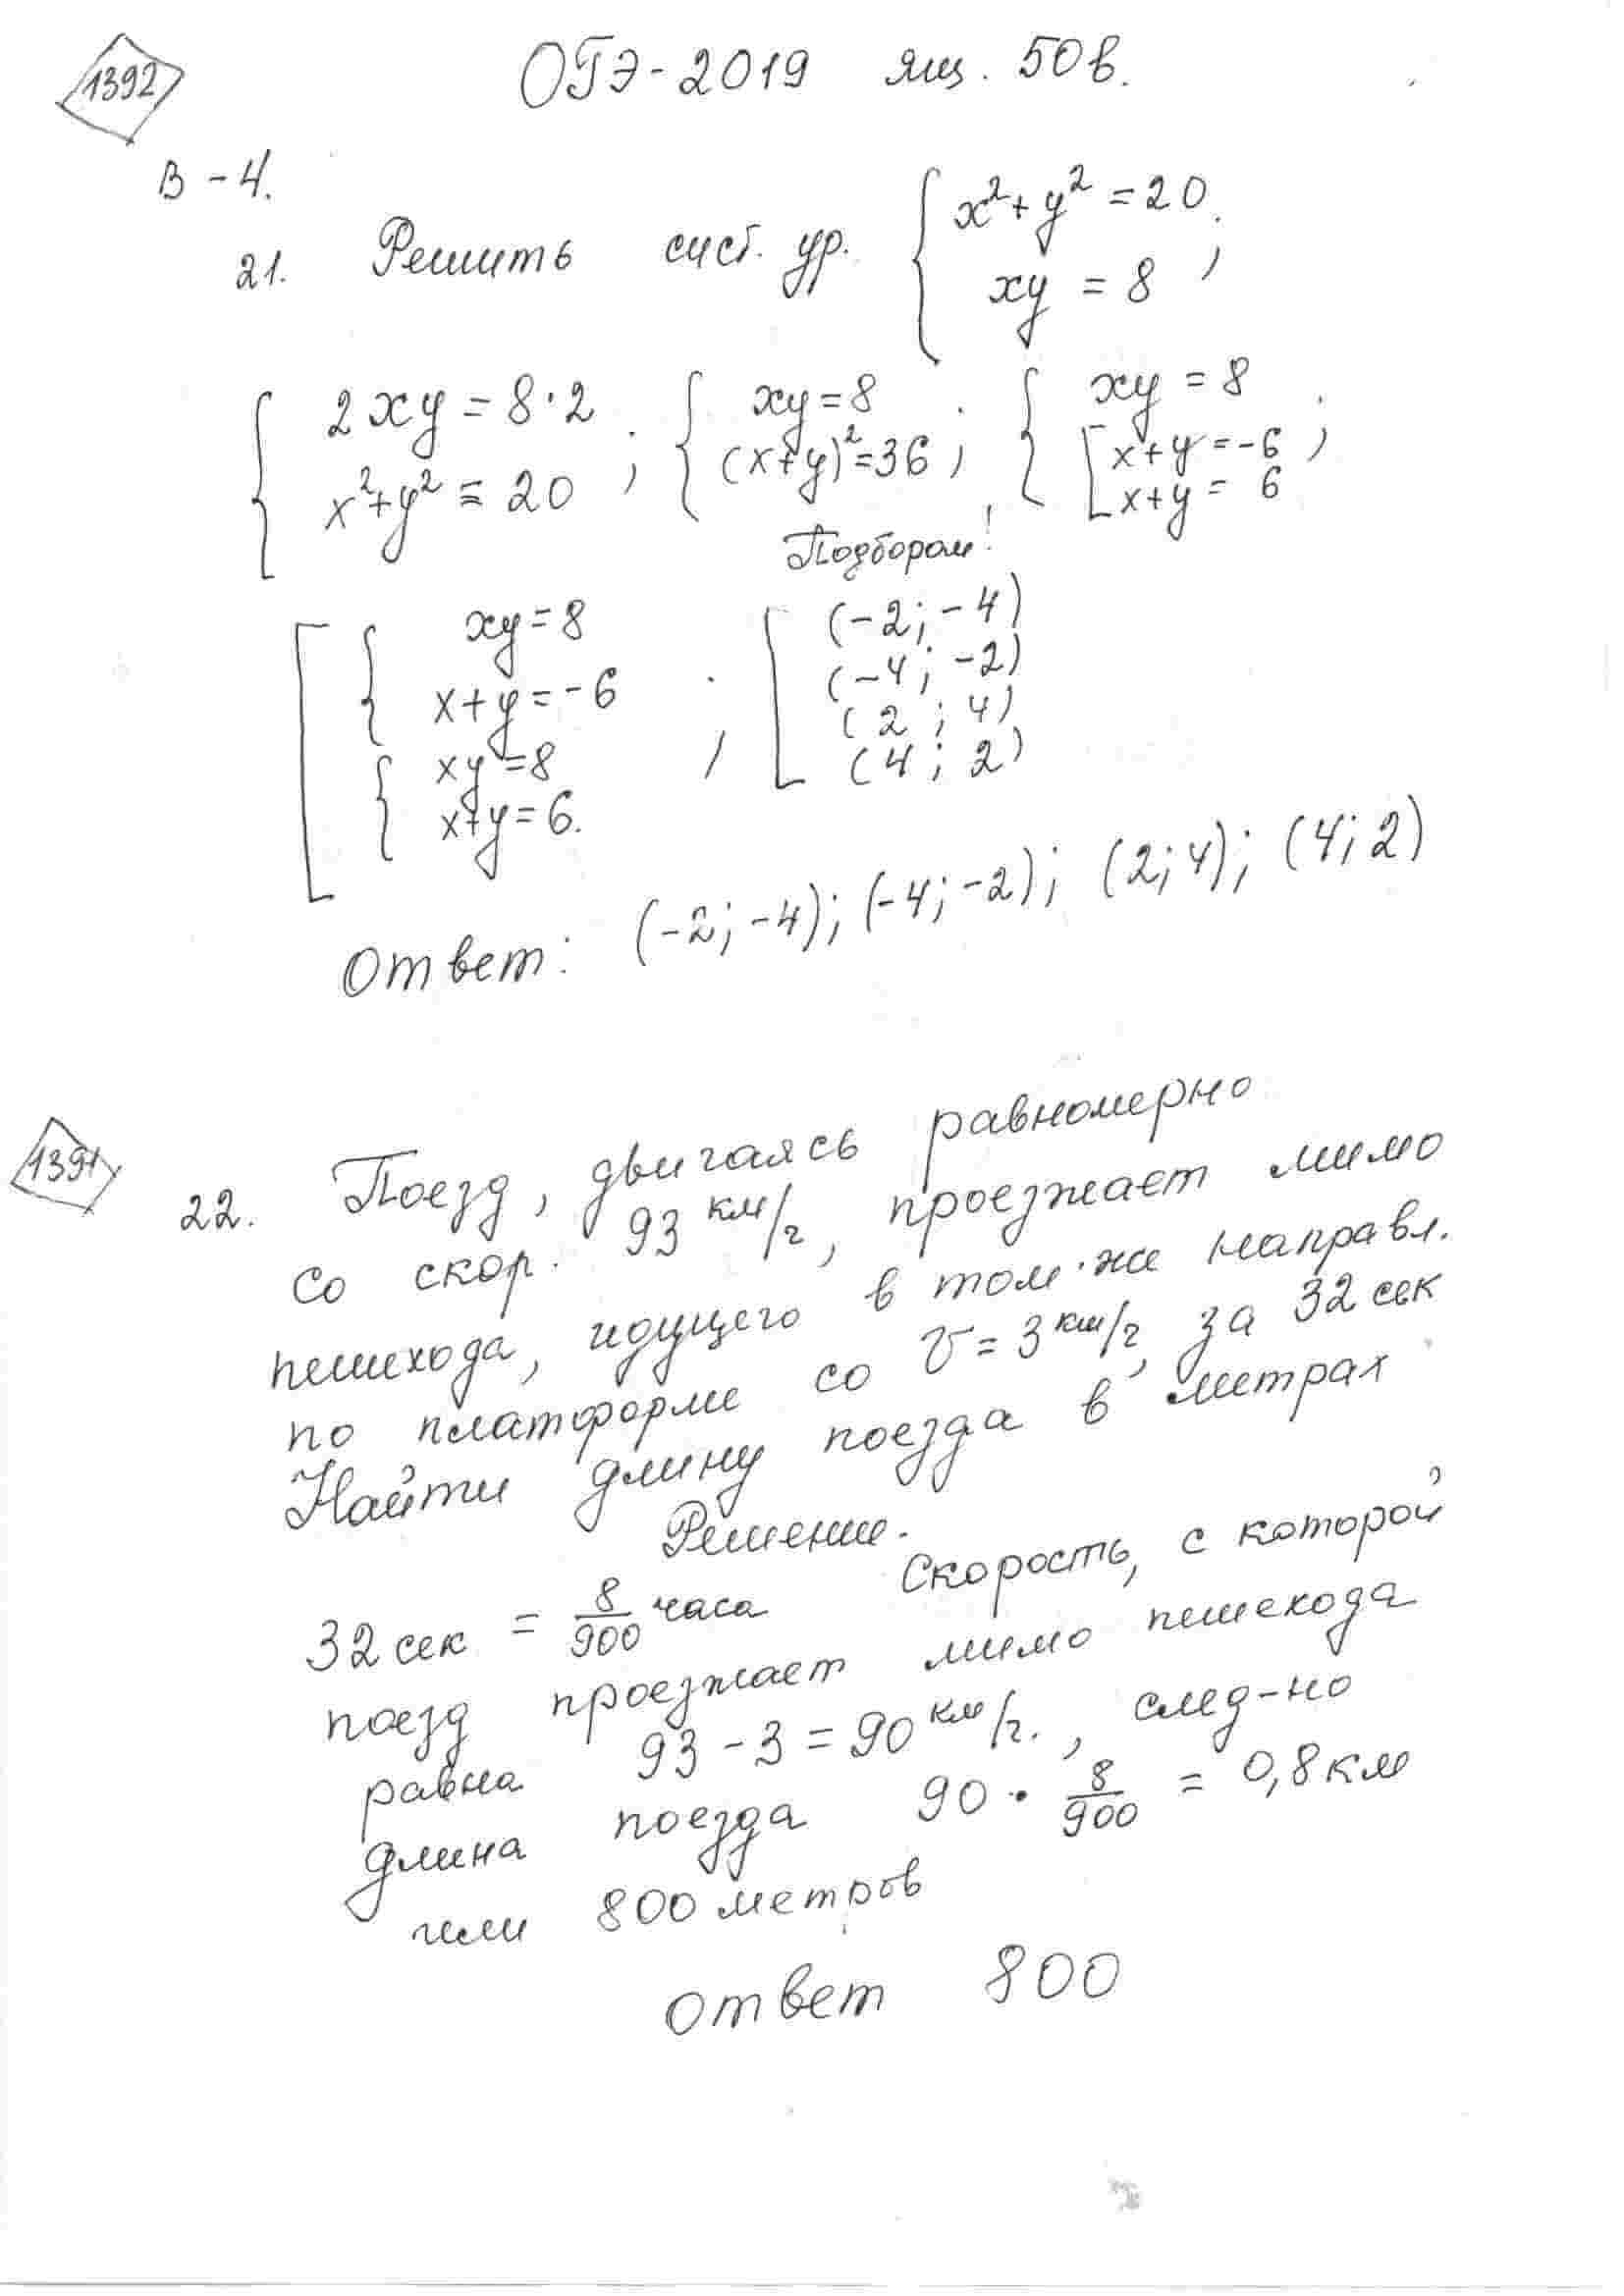 1392
ОГЭ-2019 ящ. 50в.
В-4.
21. Решить сист. ур. { x²+y²=20
xy=8 ;
{ 2xy=8·2
x²+y²=20 ; { xy=8
(x+y)²=36 ; { xy=8
[ x+y=-6
x+y=6 ;
Подбором!
[ { xy=8
x+y=-6
{ xy=8
x+y=6. ; [ (-2;-4)
(-4;-2)
(2;4)
(4;2)
Ответ: (-2;-4); (-4;-2); (2;4); (4;2)
1391
22. Поезд, двигаясь равномерно
со скор. 93 км/ч, проезжает мимо
пешехода, идущего в том же направл.
по платформе со v=3 км/ч, за 32 сек
Найти длину поезда в метрах
Решение.
32 сек = 8/900 часа Скорость, с которой
поезд проезжает мимо пешехода
равна 93-3=90 км/ч., след-но
длина поезда 90 · 8/900 = 0,8 км
или 800 метров
ответ 800